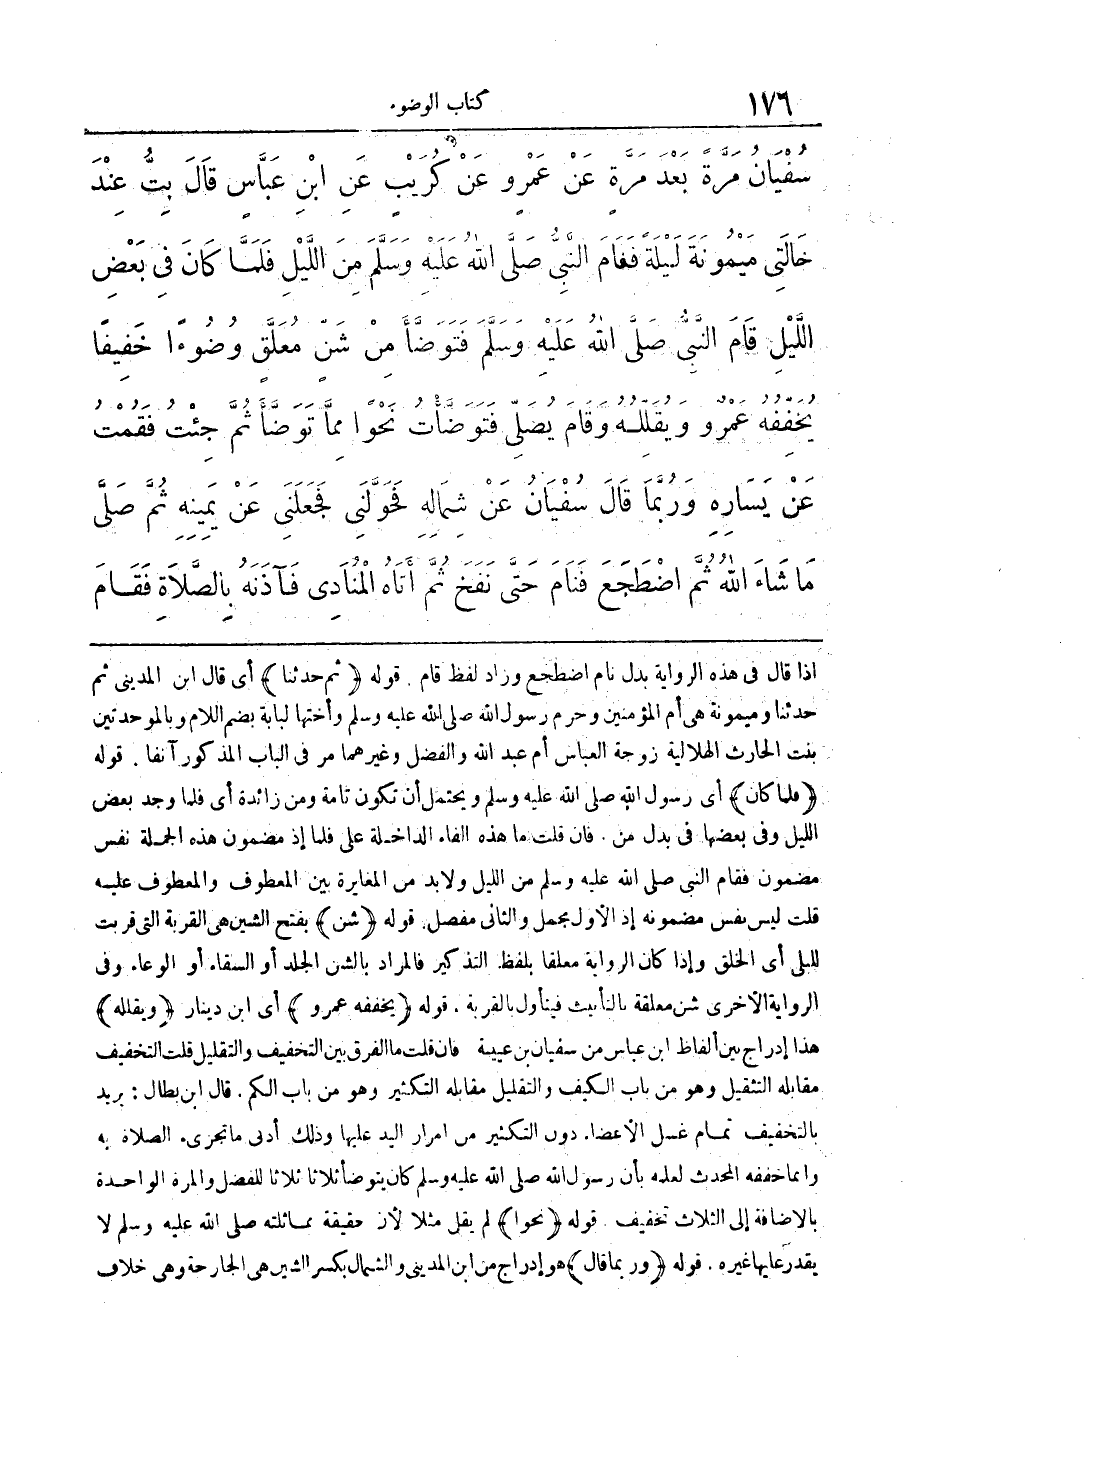 ١٧٦ كتاب الوضوء
سُفْيَانُ مَرَّةً بَعْدَ مَرَّةٍ عَنْ عَمْرٍو عَنْ كُرَيْبٍ عَنِ ابْنِ عَبَّاسٍ قَالَ بِتُّ عِنْدَ
خَالَتِي مَيْمُونَةَ لَيْلَةً فَقَامَ النَّبِيُّ صَلَّى اللهُ عَلَيْهِ وَسَلَّمَ مِنَ اللَّيْلِ فَلَمَّا كَانَ فِي بَعْضِ
اللَّيْلِ قَامَ النَّبِيُّ صَلَّى اللهُ عَلَيْهِ وَسَلَّمَ فَتَوَضَّأَ مِنْ شَنٍّ مُعَلَّقٍ وُضُوءًا خَفِيفًا
يُخَفِّفُهُ عَمْرٌو وَيُقَلِّلُهُ وَقَامَ يُصَلِّي فَتَوَضَّأْتُ نَحْوًا مِمَّا تَوَضَّأَ ثُمَّ جِئْتُ فَقُمْتُ
عَنْ يَسَارِهِ وَرُبَّمَا قَالَ سُفْيَانُ عَنْ شِمَالِهِ فَحَوَّلَنِي فَجَعَلَنِي عَنْ يَمِينِهِ ثُمَّ صَلَّى
مَا شَاءَ اللهُ ثُمَّ اضْطَجَعَ فَنَامَ حَتَّى نَفَخَ ثُمَّ أَتَاهُ الْمُنَادِي فَآذَنَهُ بِالصَّلَاةِ فَقَامَ
اذا قال فى هذه الرواية بدل نام اضطجع وزاد لفظ قام . قوله ﴿ثم حدثنا﴾ أى قال ابن المدينى ثم
حدثنا وميمونة هى أم المؤمنين وحرم رسول الله صلى الله عليه وسلم وأختها لبابة بضم اللام وبالموحدتين
بنت الحارث الهلالية زوجة العباس أم عبد الله والفضل وغيرهما مر فى الباب المذكور آنفا . قوله
﴿فلما كان﴾ أى رسول الله صلى الله عليه وسلم ويحتمل أن تكون تامة ومن زائدة أى فلما وجد بعض
الليل وفى بعضها فى بدل من . فان قلت ما هذه الفاء الداخلة على فلما إذ مضمون هذه الجملة نفس
مضمون فقام النبي صلى الله عليه وسلم من الليل ولابد من المغايرة بين المعطوف والمعطوف عليه
قلت ليس نفس مضمونه إذ الأول مجمل والثانى مفصل . قوله ﴿شن﴾ بفتح الشين هى القربة التى قربت
للبلى أى الخلق وإذا كان الرواية معلقا بلفظ التذكير فالمراد بالشن الجلد أو السقاء أو الوعاء وفى
الرواية الأخرى شن معلقة بالتأنيث فيتأول بالقربة . قوله ﴿يخففه عمرو﴾ أى ابن دينار ﴿ويقلله﴾
هذا إدراج بين ألفاظ ابن عباس من سفيان بن عيينة فان قلت ما الفرق بين التخفيف والتقليل قلت التخفيف
مقابله التثقيل وهو من باب الكيف والتقليل مقابله التكثير وهو من باب الكم . قال ابن بطال : يريد
بالتخفيف تمام غسل الأعضاء دون التكثير من امرار اليد عليها وذلك أدنى ما تجزىء الصلاة به
وانما خففه المحدث لعلمه بأن رسول الله صلى الله عليه وسلم كان يتوضأ ثلاثا ثلاثا للفضل والمرة الواحدة
بالاضافة إلى الثلاث تخفيف . قوله ﴿نحوا﴾ لم يقل مثلا لأن حقيقة مماثلته صلى الله عليه وسلم لا
يقدر عليها غيره . قوله ﴿وربما قال﴾ هو إدراج من ابن المدينى والشمال بكسر الشين هى الجارحة وهى خلاف